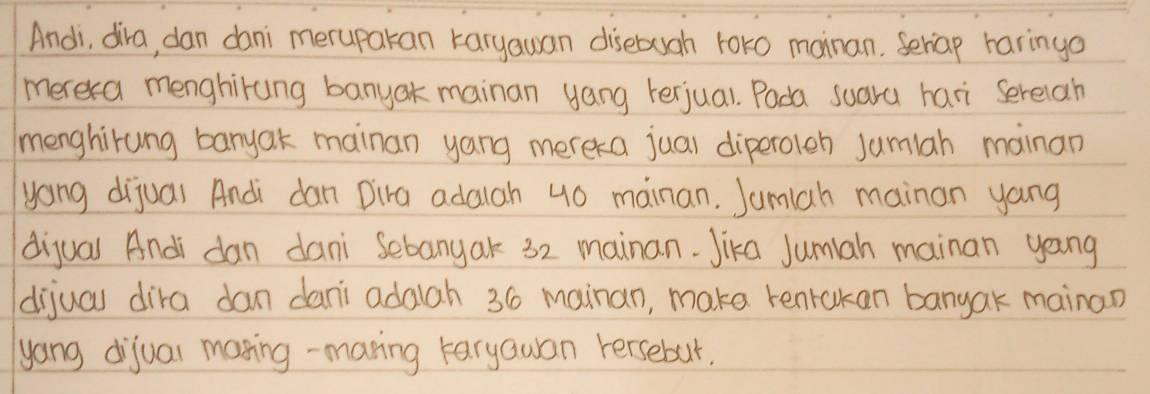 Andi, dira, dan dani merupakan karyawan disebuah toko mainan. Setiap harinya
mereka menghitung banyak mainan yang terjual. Pada suatu hari setelah
menghitung banyak mainan yang mereka jual diperoleh Jumlah mainan
yang dijual Andi dan Dira adalah 40 mainan. Jumlah mainan yang
dijual Andi dan dani Sebanyak 32 mainan. Jika Jumlah mainan yang
dijual dira dan dani adalah 36 mainan, maka tentukan banyak mainan
yang dijual masing-masing karyawan tersebut.